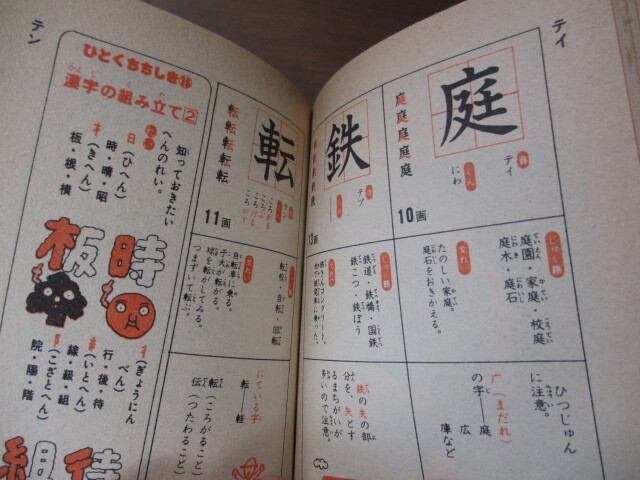 テイ
庭
庭庭庭庭庭
テイ
くん
にわ
10画
じゅく語
庭園・家庭・校庭
庭木・庭石
文れい
たのしい家庭。
庭石をおきかえる。
ひつじゅん
に注意。
广(まだれ)
の字―庭
広
庫など
鉄
テツ
13画
じゅく語
鉄道・鉄橋・国鉄
鉄こつ・鉄ぼう
鉄の失の部
分を、矢とす
るまちがいが
多いので注意。
テン
転
転転転転転
テン
ころがる
ころぶ
ころげる
ころがす
11画
転校・自転・回転
文れい
自転車に乗る。
子犬が転がる。
球を転がしてみる。
つまずいて転ぶ。
にている字
転―軽
転(ころがること)
伝(つたわること)
ひとくちちしき19
漢字の組み立て2
知っておきたい
へんのれい。
日(ひへん)
時・晴・昭
木(きへん)
板・根・横
時
板
彳(ぎょうにん
べん)
行・後・待
糸(いとへん)
線・級・組
阝(こざとへん)
院・陽・階
待
組